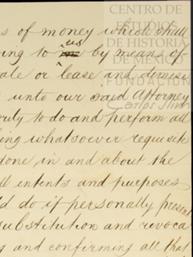 CENTRO DE
ESTUDIOS
DE HISTORIA
DE MEXICO
FUNDACIÓN
Carlos Slim
s of money which shall
ing to us by means of
ale or lease and
unto our said Attorney
rity to do and perform all
ing whatsoever requisite
done in and about the
ll intents and purposes
ld do if personally present
substitution and revoca
g and confirming all that